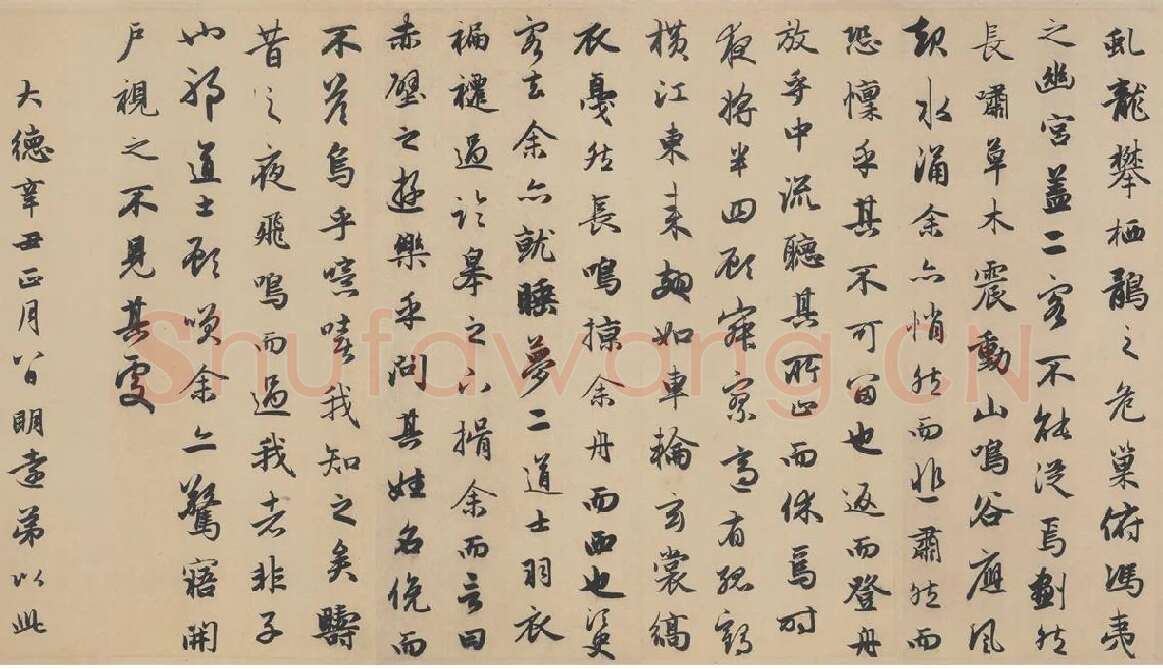 虬龍攀栖鶻之危巢俯馮夷
之幽宮盖二客不能從焉劃然
長嘯草木震動山鳴谷應風
起水涌余亦悄然而悲肅然而
恐懍乎其不可留也返而登舟
放乎中流聽其所止而休焉時
夜將半四顧寂寥適有孤鶴
横江東来翅如車輪玄裳縞
衣戛然長鳴掠余舟而西也須臾
客去余亦就睡夢二道士羽衣
褊褼過臨皋之下揖余而言曰
赤壁之遊樂乎問其姓名俛而
不答烏乎噫嘻我知之矣疇
昔之夜飛鳴而過我者非子
也邪道士顧笑余亦驚寤開
户視之不見其處
大德辛丑正月八日明遠弟以此
Shufawang.CN